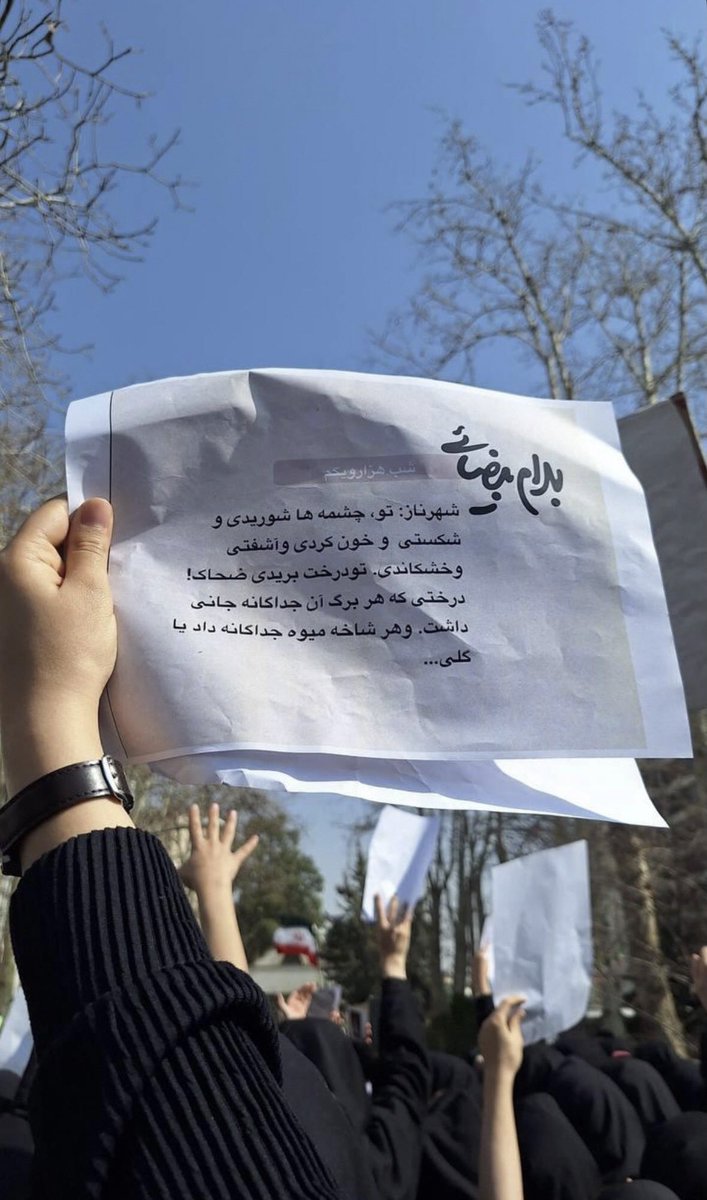 بهرام بیضائی
شب هزارویکم
شهرناز: تو، چشمه ها شوریدی و
شکستی و خون کردی وآشفتی
وخشکاندی. تودرخت بریدی ضحاک!
درختی که هر برگ آن جداگانه جانی
داشت. وهر شاخه میوه جداگانه داد یا
گلی...